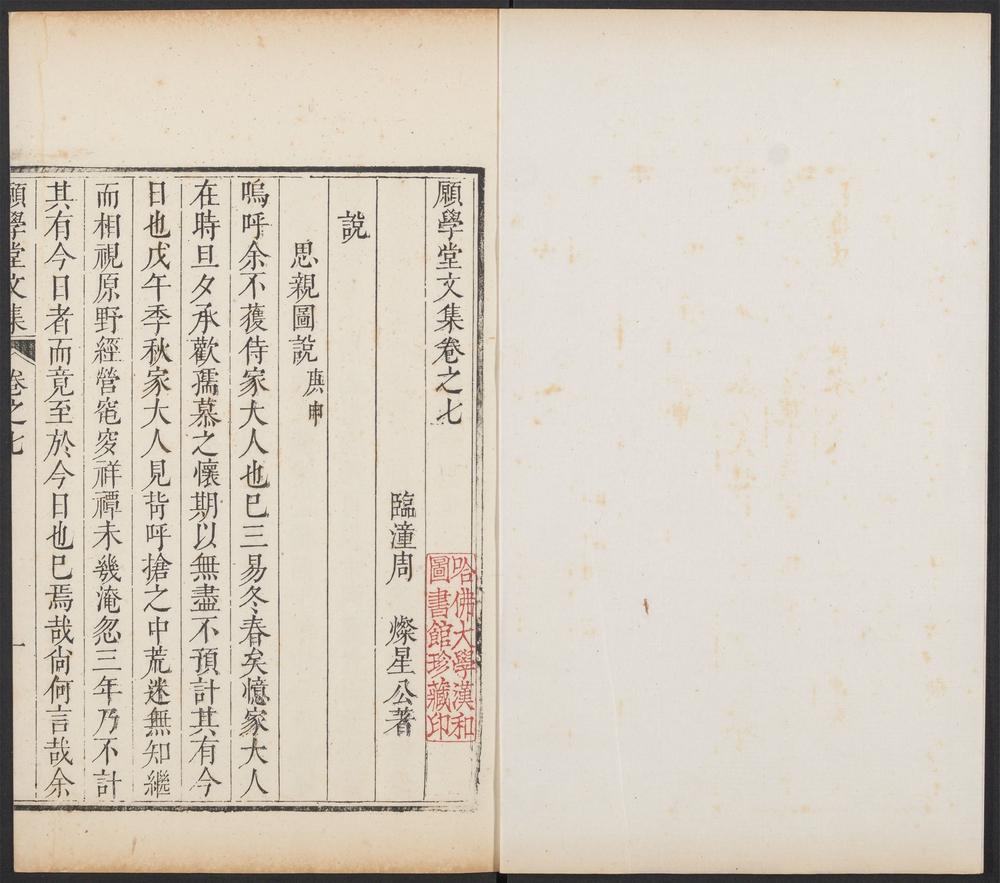 願學堂文集卷之七
哈佛大學漢和
圖書館珍藏印
臨潼周　燦星公著
說
思親圖說庚申
嗚呼余不獲侍家大人也巳三易冬春矣憶家大人
在時旦夕承歡孺慕之懷期以無盡不預計其有今
日也戊午季秋家大人見背呼搶之中荒迷無知繼
而相視原野經營窀穸祥禫未幾淹忽三年乃不計
其有今日者而竟至於今日也巳焉哉尙何言哉余
願學堂文集
卷之七
一